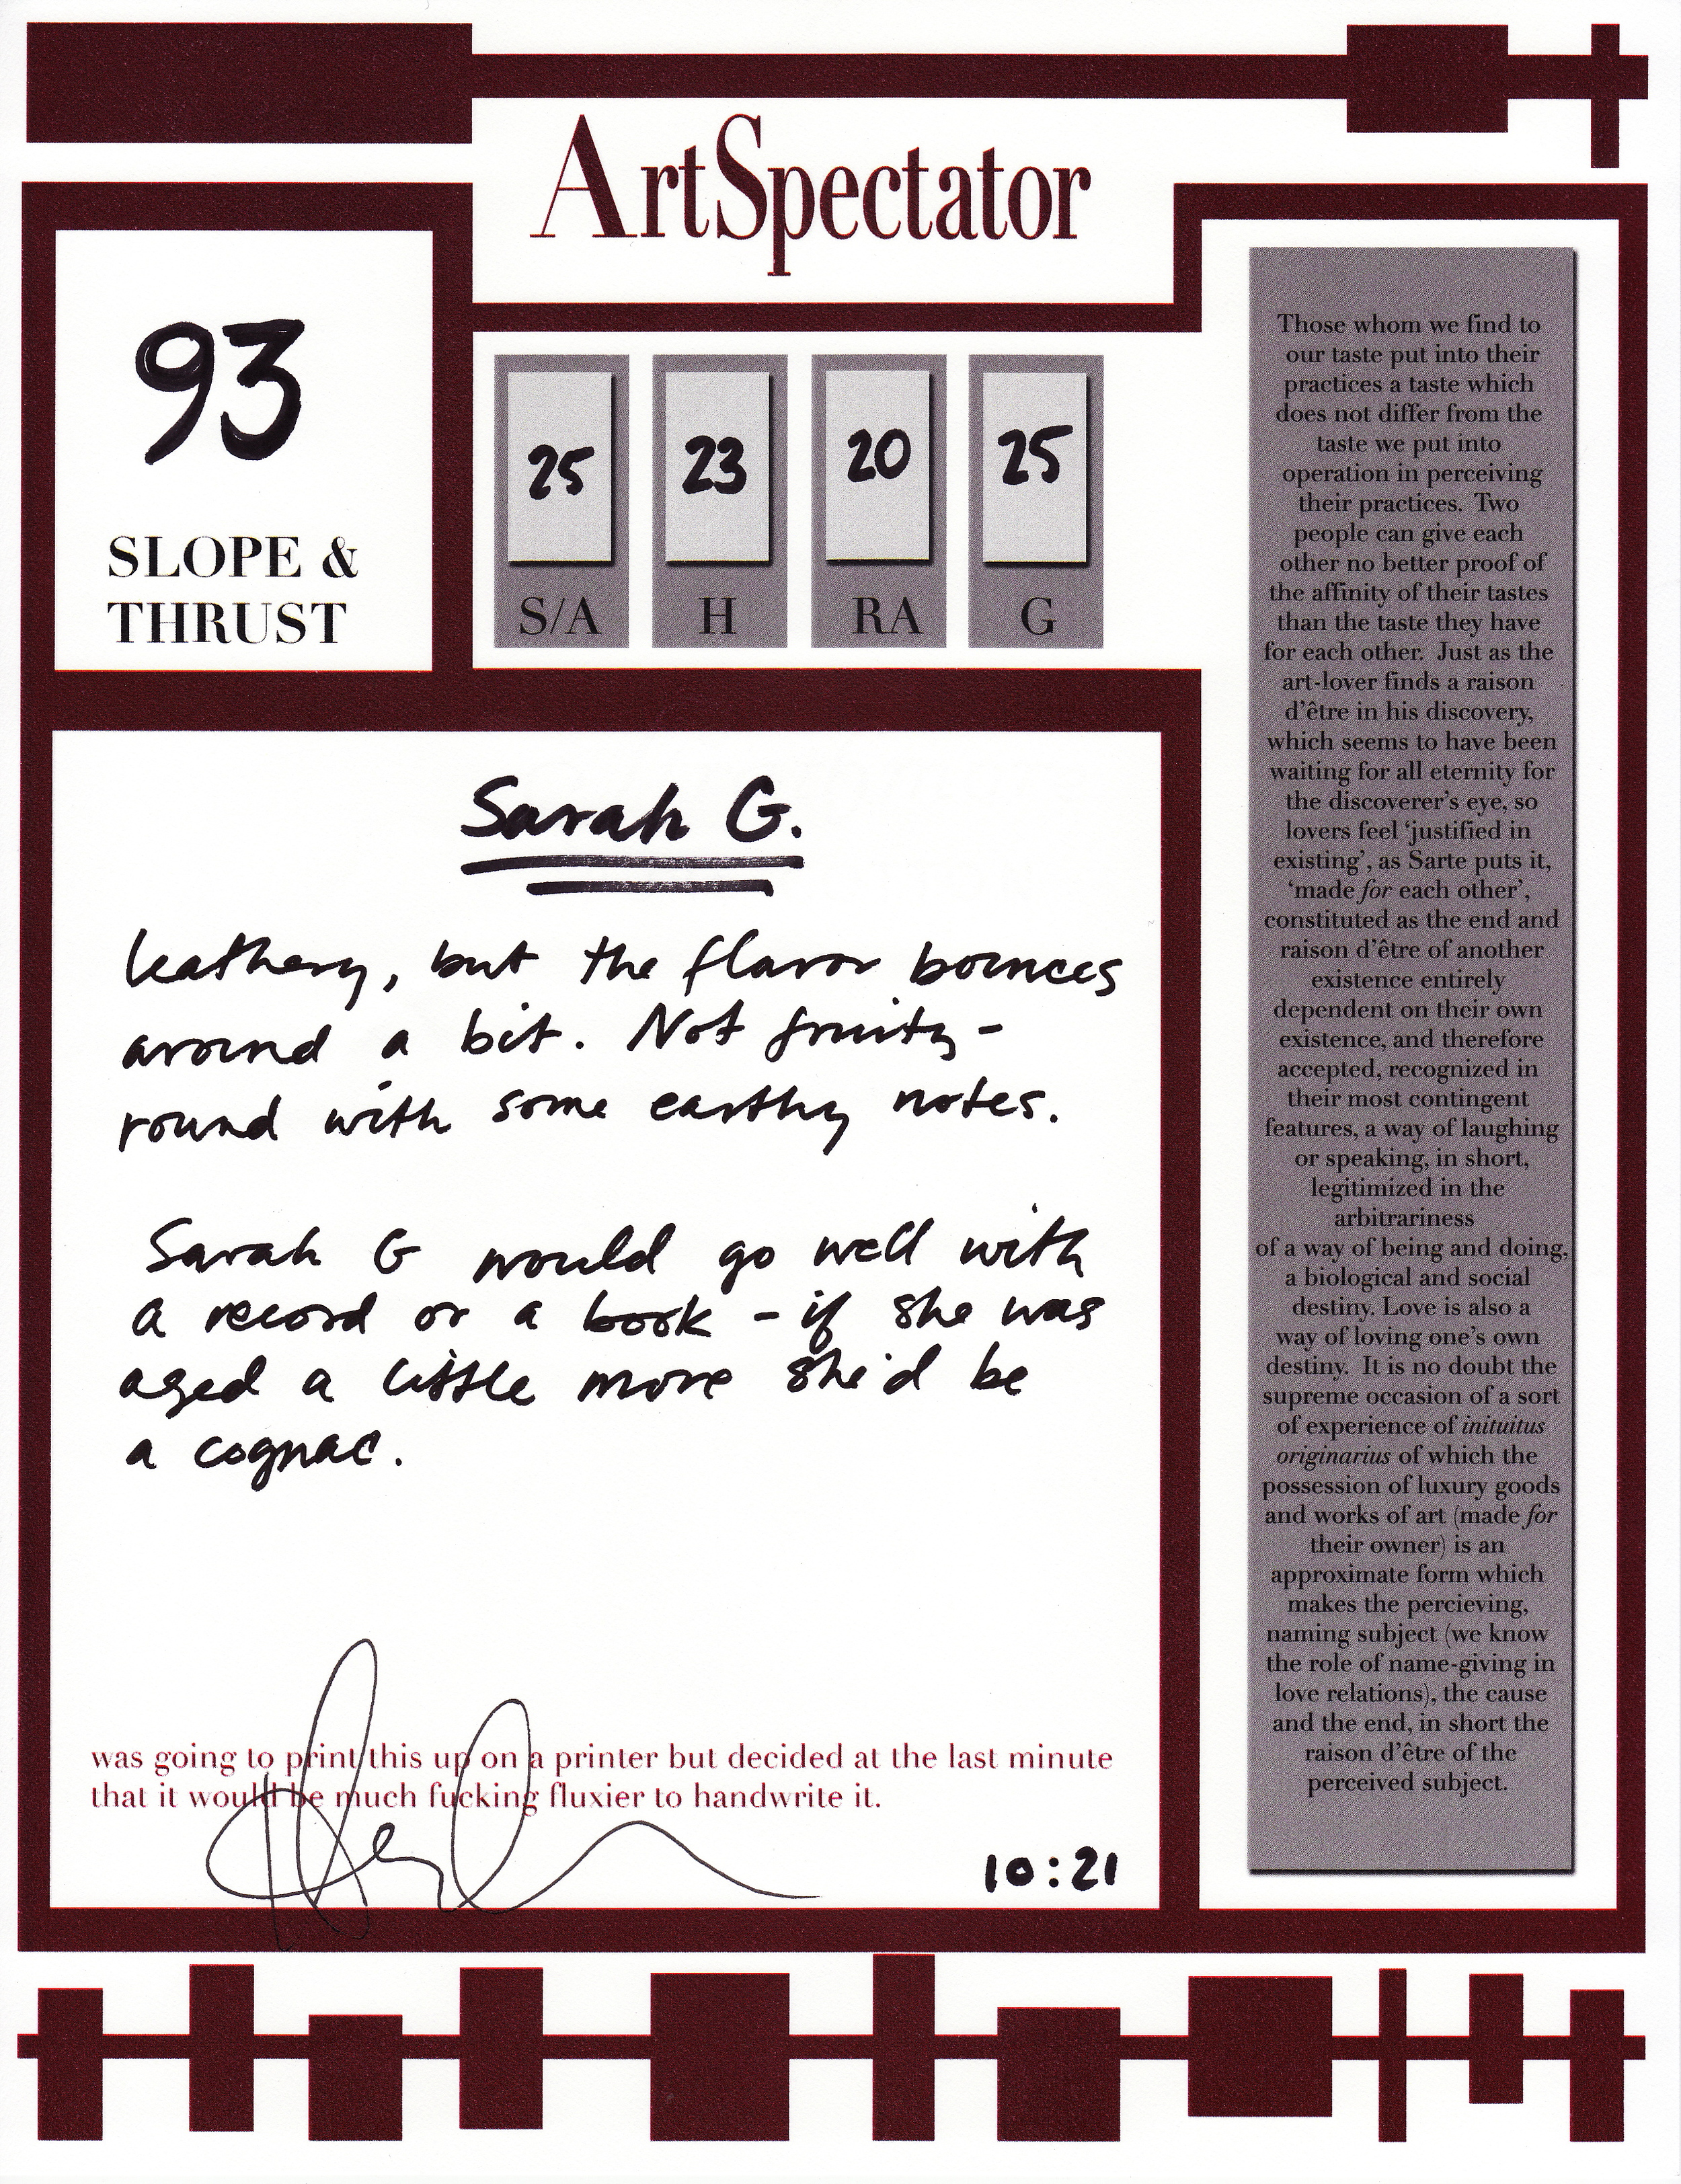 ArtSpectator
93
SLOPE &
THRUST
25 23 20 25
S/A H RA G
Sarah G.
leathery, but the flavor bounces
around a bit. Not fruity-
round with some earthy notes.
Sarah G would go well with
a record or a book - if she was
aged a little more she'd be
a cognac.
was going to print this up on a printer but decided at the last minute
that it would be much fucking fluxier to handwrite it.
10:21
Those whom we find to
our taste put into their
practices a taste which
does not differ from the
taste we put into
operation in perceiving
their practices. Two
people can give each
other no better proof of
the affinity of their tastes
than the taste they have
for each other. Just as the
art-lover finds a raison
d'être in his discovery,
which seems to have been
waiting for all eternity for
the discoverer's eye, so
lovers feel 'justified in
existing', as Sarte puts it,
'made for each other',
constituted as the end and
raison d'être of another
existence entirely
dependent on their own
existence, and therefore
accepted, recognized in
their most contingent
features, a way of laughing
or speaking, in short,
legitimized in the
arbitrariness
of a way of being and doing,
a biological and social
destiny. Love is also a
way of loving one's own
destiny. It is no doubt the
supreme occasion of a sort
of experience of inituitus
originarius of which the
possession of luxury goods
and works of art (made for
their owner) is an
approximate form which
makes the percieving,
naming subject (we know
the role of name-giving in
love relations), the cause
and the end, in short the
raison d'être of the
perceived subject.